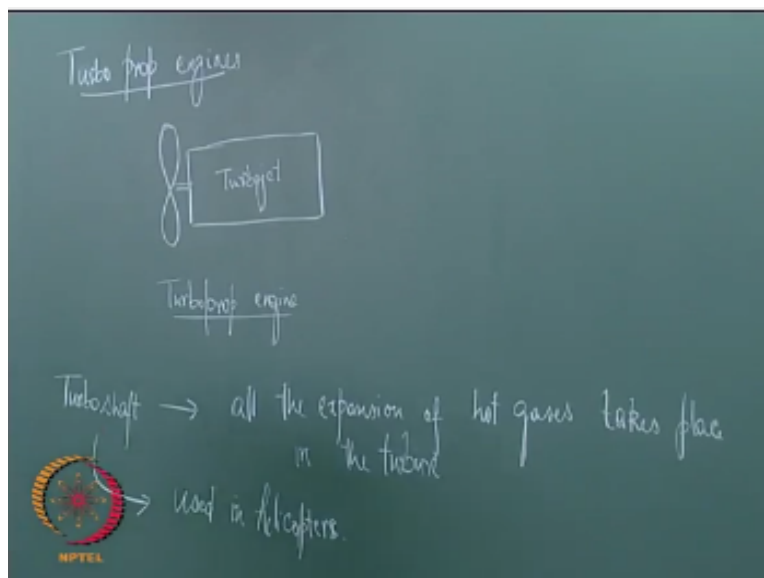 Turbo prop engines
Turbojet
Turboprop engine
Turboshaft → all the expansion of hot gases takes place
in the turbine
→ used in helicopters.
NPTEL